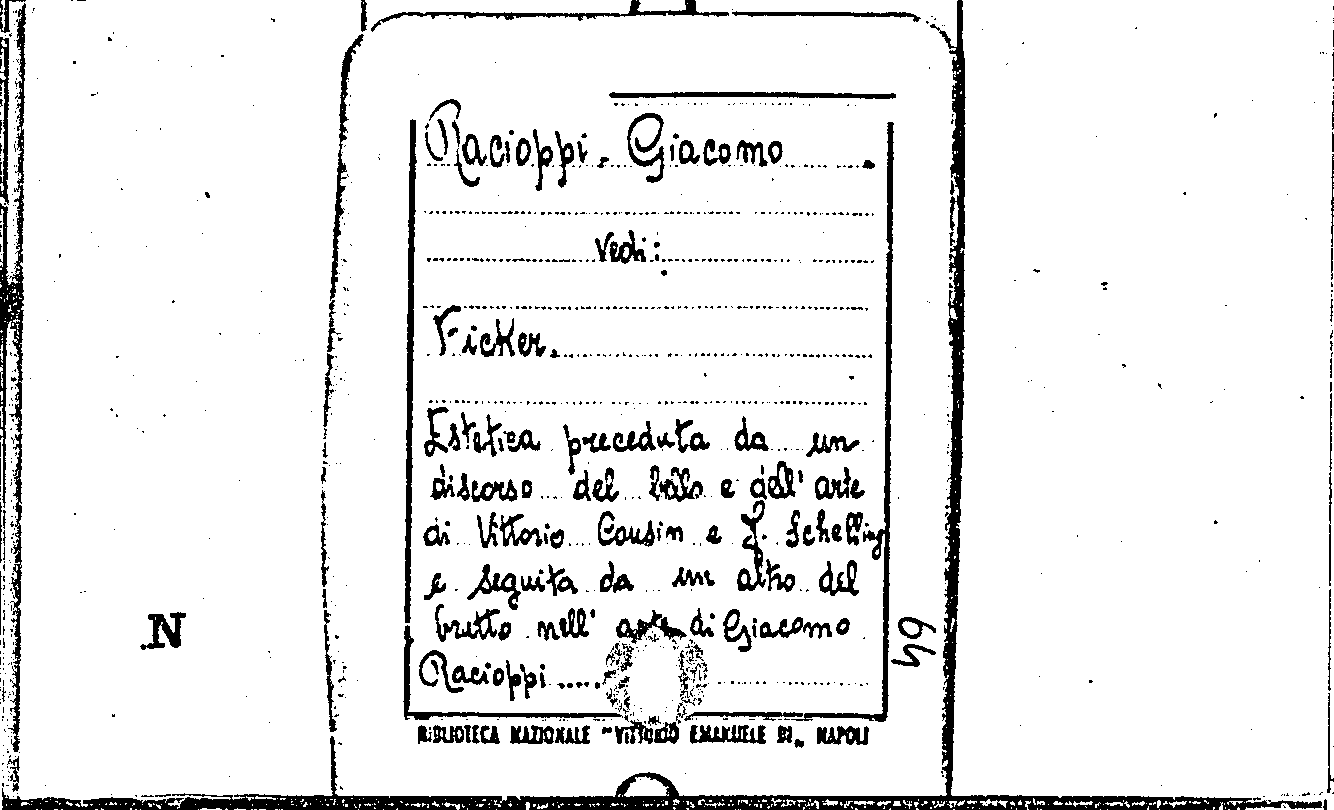 Racioppi. Giacomo
Vedi:
Ficker.
Estetica preceduta da un
discorso del bello e dell'arte
di Vittorio Cousin e F. Schelling
e seguita da un altro del
brutto nell'arte di Giacomo
Racioppi.....
BIBLIOTECA NAZIONALE "VITTORIO EMANUELE III" NAPOLI
N
64